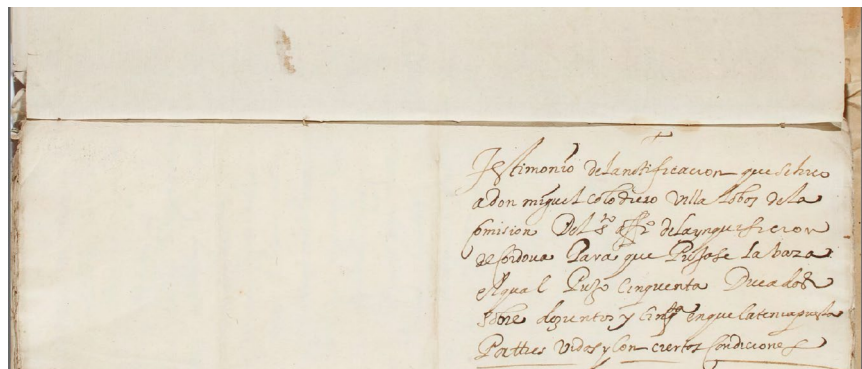 Testimonio de la notificacion que se hiço
a don miguel colodrero Villa lobos de la
comision Del s.to offi.o de la ynquisicion
de Cordova Para que Pujase la baza
el qual Pujo Cinquenta Ducados
sobre dozientos y cinq.ta en que la tenia puesta
Por tres Vidas y Con ciertas Condiciones